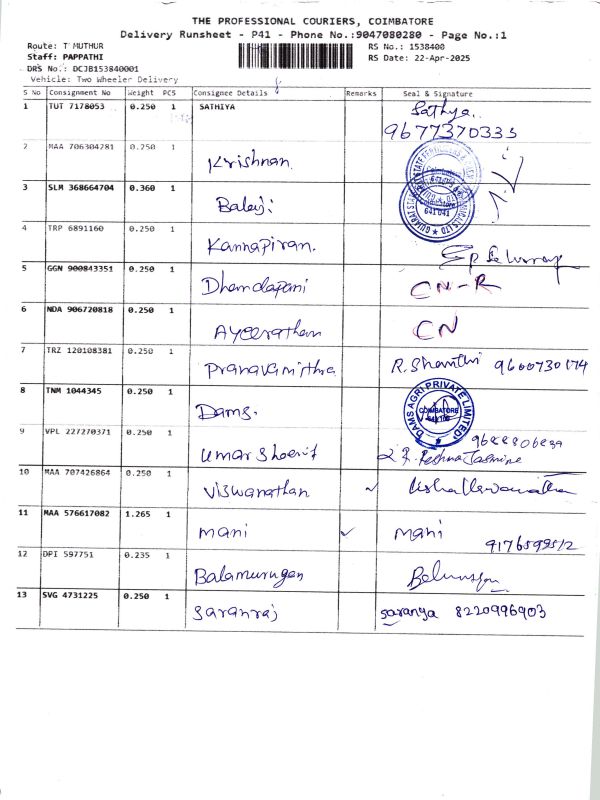 THE PROFESSIONAL COURIERS, COIMBATORE
Delivery Runsheet - P41 - Phone No.:9047080280 - Page No.:1
Route: T MUTHUR
RS No.: 1538400
Staff: PAPPATHI
RS Date: 22-Apr-2025
DRS No.: DCJB153840001
Vehicle: Two Wheeler Delivery
S No Consignment No Weight PCS Consignee Details Remarks Seal & Signature
1 TUT 7178053 0.250 1 SATHIYA Sathya.
9677370335
2 MAA 706304281 0.250 1
Krishnan.
3 SLM 368664704 0.360 1
Balaji
641 041
4 TRP 6891160 0.250 1
Kannapiran.
5 GGN 900843351 0.250 1
Dhandapani CN-R
6 NDA 906720818 0.250 1
CN
7 TRZ 120108381 0.250 1
Pranavamithra R. Shanthi
8 TNM 1044345 0.250 1
Dams. DAMS AGRI PRIVATE LIMITED COIMBATORE
9 VPL 227270371 0.250 1
Umar Sheerif
10 MAA 707426864 0.250 1
Viswanathan
11 MAA 576617082 1.265 1
mani mani
12 DPI 597751 0.235 1
Balamurugan
13 SVG 4731225 0.250 1
Saranraj saranya 8220996903